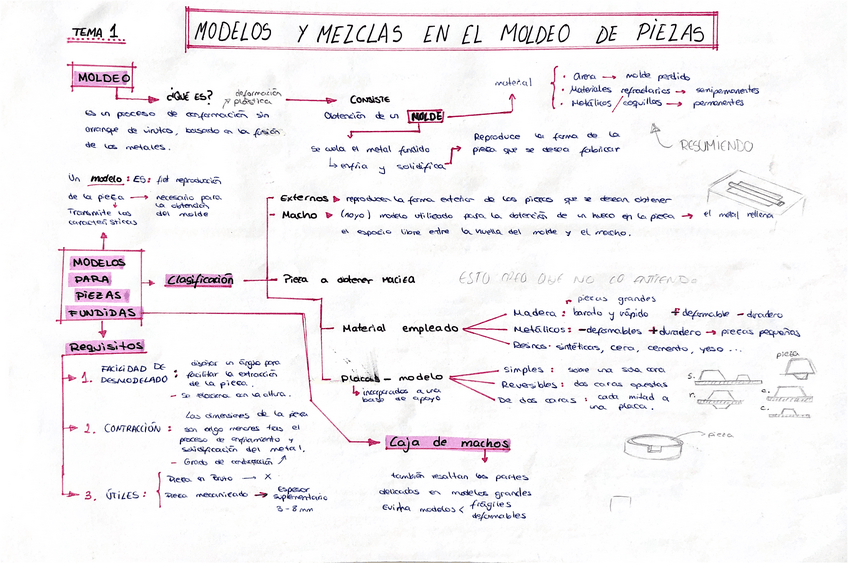 TEMA 1
MODELOS Y MEZCLAS EN EL MOLDEO DE PIEZAS
MOLDEO
¿QUÉ ES?
deformación
y plástica
Es un proceso de conformación sin
arranque de virutas, basado en la fusión
de los metales.
CONSISTE
Obtención de un MOLDE
Se cuela el metal fundido
enfría y solidifica
Reproduce la forma de la
pieza que se desea fabricar
material
· Arena → molde perdido
· Materiales refractarios → semipermanentes
· Metálicos / coquillas → permanentes
RESUMIENDO
Un modelo : ES: fiel reproducción
de la pieza → necesario para
la obtención
del molde
Transmite las
características
MODELOS
PARA
PIEZAS
FUNDIDAS
Clasificación
- Externos ▸ reproducen la forma exterior de las piezas que se desean obtener
- Macho ▸ (noyo) modelo utilizado para la obtención de un hueco en la pieza → el metal rellena
el espacio libre entre la huella del molde y el macho.
- Pieza a obtener maciza
ESTO CREO QUE NO LO ENTIENDO
- Material empleado
piezas grandes
Madera : barato y rápido + deformable - duradero
Metálicos : - deformables + duradero → piezas pequeñas
Resinas sintéticas, cera, cemento, yeso ...
- Placas - modelo
incorporados a una
base de apoyo
Simples : sobre una sola cara
Reversibles : dos caras opuestas
De dos caras : cada mitad a
una placa.
pieza
s.
r.
c.
c.
pieza
Requisitos
1. FACILIDAD DE
DESMODELADO :
diseñar un ángulo para
facilitar la extracción
de la pieza.
- Se elaciona en la altura.
2. CONTRACCIÓN :
Las dimensiones de la pieza
son algo menores tras el
proceso de enfriamiento y
solidificación del metal.
- Grado de contracción
3. ÚTILES :
Pieza en bruto → X
Pieza mecanizado → Espesor
suplementario
3-8 mm
Caja de machos
también resaltan las partes
delicadas en modelos grandes
Evita modelos < frágiles
deformables